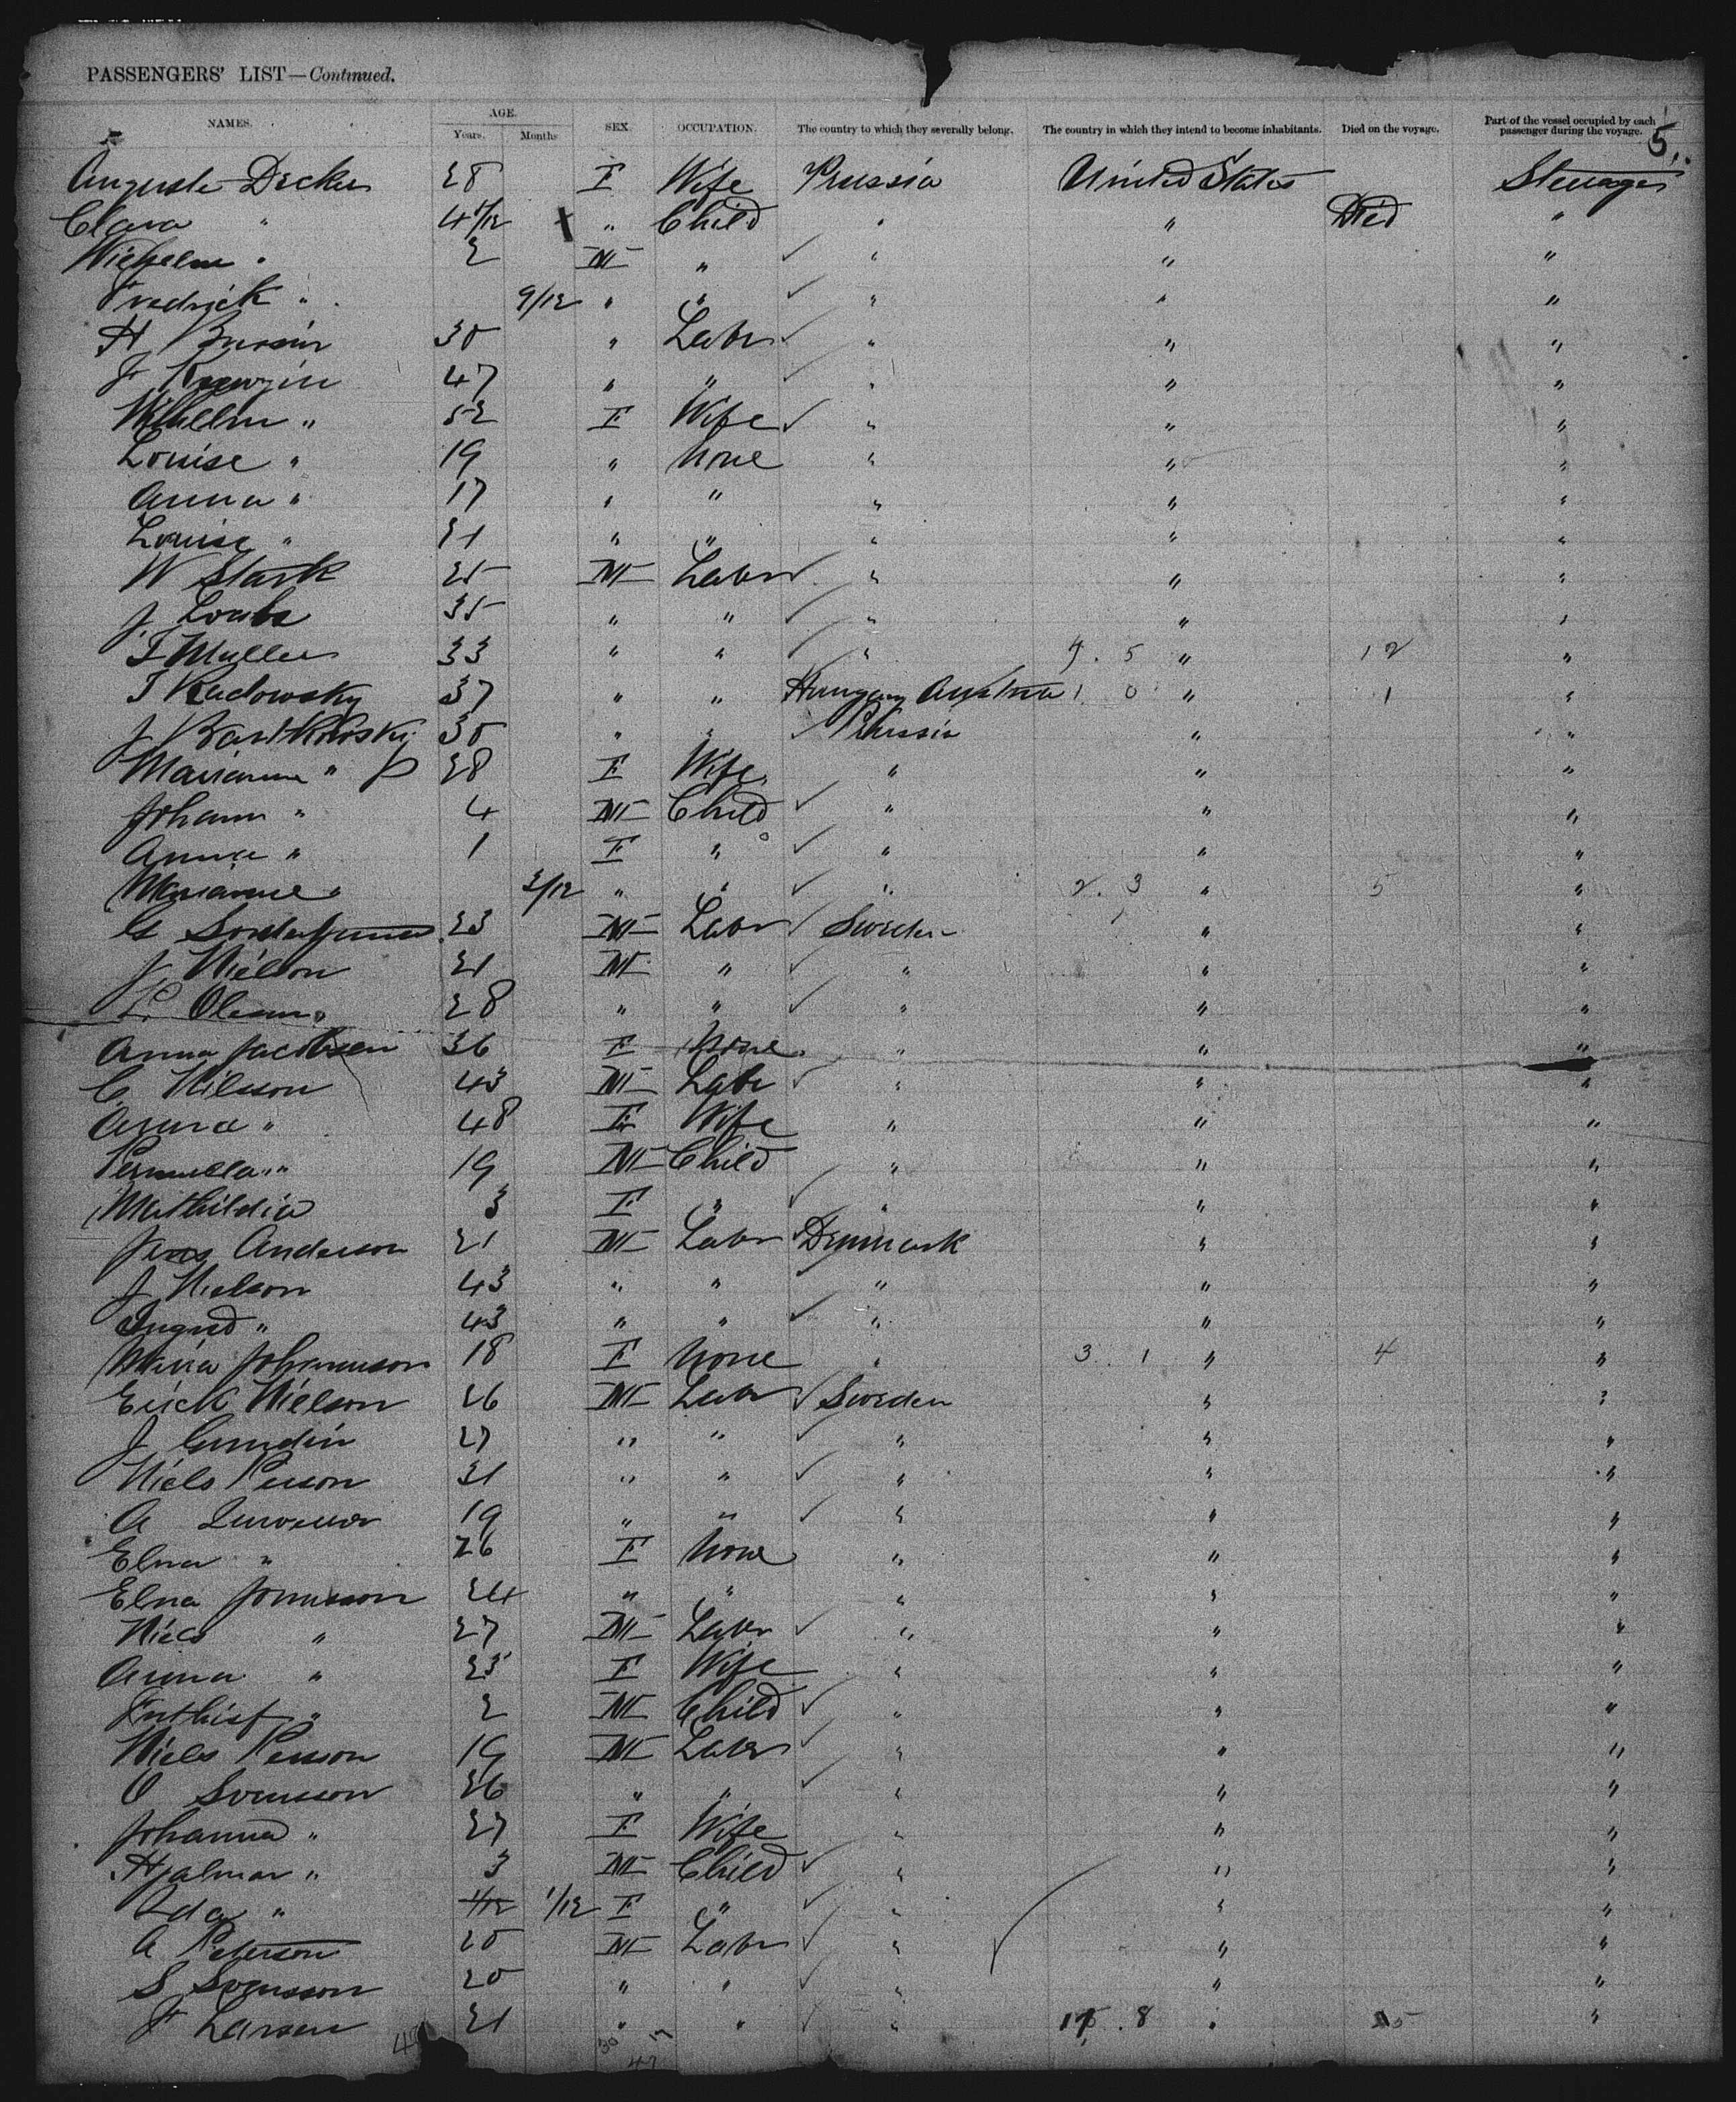 PASSENGERS' LIST—Continued.
NAMES. AGE. Years. Months SEX. OCCUPATION. The country to which they severally belong. The country in which they intend to become inhabitants. Died on the voyage. Part of the vessel occupied by each passenger during the voyage.
5
Auguste Decker 28 F Wife Prussia United States Steerage
Clara " 4 1/12 X " Child " " Died "
Wilhelm " 2 M " " " "
Fredrick " 9/12 " " " " "
H 30 " Labr " " "
J 47 " " " " "
Wilhelm " 52 F Wife " " "
Louise " 19 " None " " "
Anna " 17 " " " " "
Louise " 21 " " " " "
W Stark 25 M Labr " " "
J 35 " " " " "
F Muller 33 " " " 7. 5 " 12 "
J Radowsky 37 " " Hungary Austria 1. 0 " 1 "
J Bartkowski 30 " " Prussia " "
Marianna " 28 F Wife " " "
Johann " 4 M Child " " "
Anna " 1 F " " " "
Marianne " 2/12 " " " 2. 3 " 5 "
G 23 M Labr Sweden " "
J Nielson 21 M " " " "
P. 28 " " " " "
Anna Jacobsen 36 F None " " "
C Nilsson 43 M Labr " " "
Anna " 48 F Wife " " "
Pernilla " 19 M Child " " "
Mathildia 3 F " " " "
Jens Anderson 21 M Labr Denmark " "
J Nielson 43 " " " " "
Ingrid " 43 " " " " "
Maria Johannson 18 F None " 3. 1 " 4 "
Erick Nielson 26 M Labr Sweden " "
J Gundin 27 " " " " "
Niels Person 31 " " " " "
A 19 " " " " "
Elna " 26 F None " " "
Elna Jonasson 24 " " " " "
Niels " 27 M Labr " " "
Anna " 25 F Wife " " "
Frithiof " 2 M Child " " "
Niels Persson 19 M Labr " " "
O Svensson 26 " " " " "
Johanna " 27 F Wife " " "
Hjalmar " 3 M Child " " "
Ida " 1/12 1/12 F " " " "
A Peterson 20 M Labr " " "
S Svensson 20 " " " " "
J Larsen 21 " " " 8 " "
30 17
47